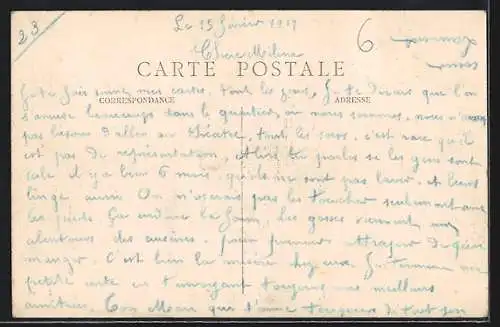 23
Le 15 février 1917
6
Chère Méline
CARTE POSTALE
CORRESPONDANCE
ADRESSE
Je te fais suivre mes cartes, tout les jours, Je te dirais que l'on
s'amuse beaucoup dans le quartier où nous sommes, nous n'avons
pas besoins d'aller au théâtre, tout les soirs, c'est rare qu'il
est pas de représentation, tu parles se les gens sont
sale il y a bien 6 mois qu'ils ne sont pas laver, et leurs
linge aussi On n'oserais pas les toucher seulement avec
les pieds la faim, Les gosses viennent aux
alentours des cuisines, pour pouvoir attraper de quoi
manger. C'est bien la misère Je termine ma
petite carte en t'envoyant toujours mes meilleurs
amitiés. Ton qui t'aime toujours de tout son